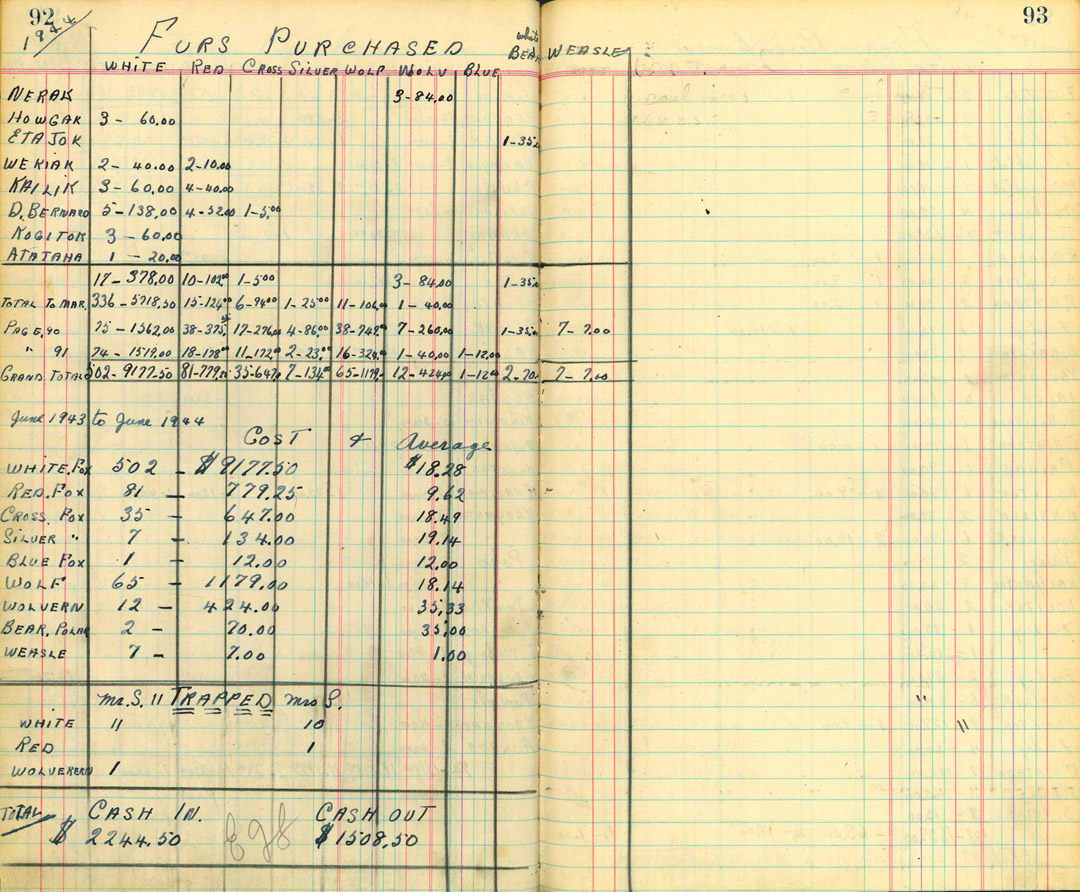 92 93
1944
FURS PURCHASED
WHITE RED CROSS SILVER WOLF WOLV BLUE white BEAR WEASLE
NERAK 3-84.00
HOWGAK 3- 60.00
ETAJOK 1-35.
WEKIAK 2- 40.00 2-10.00
KAILIK 3-60.00 4-40.00
D. BERNARD 5-138.00 4-52.00 1-5.00
KOGITOK 3 - 60.00
ATATAHA 1 - 20.00
17-378.00 10-102.00 1-5.00 3-84.00 1-35.
TOTAL TO MAR. 336-5718.50 15-124.00 6-94.00 1-25.00 11-106.00 1-40.00
PAGE 90 75-1562.00 38-375. 17-276.00 4-86.00 38-749. 7-260.00 1-35. 7-7.00
" 91 74-1519.00 18-178.00 11-172.00 2-23.00 16-324. 1-40.00 1-12.00
GRAND TOTAL 502-9177.50 81-779. 35-647. 7-134.00 65-1179. 12-424.00 1-12.00 2-70. 7-7.00
June 1943 to June 1944
COST & Average
WHITE FOX 502 - $9177.50 $18.28
RED. FOX 81 - 779.25 9.62
CROSS. FOX 35 - 647.00 18.49
SILVER " 7 - 134.00 19.14
BLUE FOX 1 - 12.00 12.00
WOLF 65 - 1179.00 18.14
WOLVERN 12 - 424.00 35.33
BEAR, POLAR 2 - 70.00 35.00
WEASLE 7 - 7.00 1.00
Mr. S. 11 TRAPPED Mrs S.
WHITE 11 10
RED 1
WOLVERERN 1
TOTAL CASH IN. CASH OUT
$ 2244.50 $1508.50